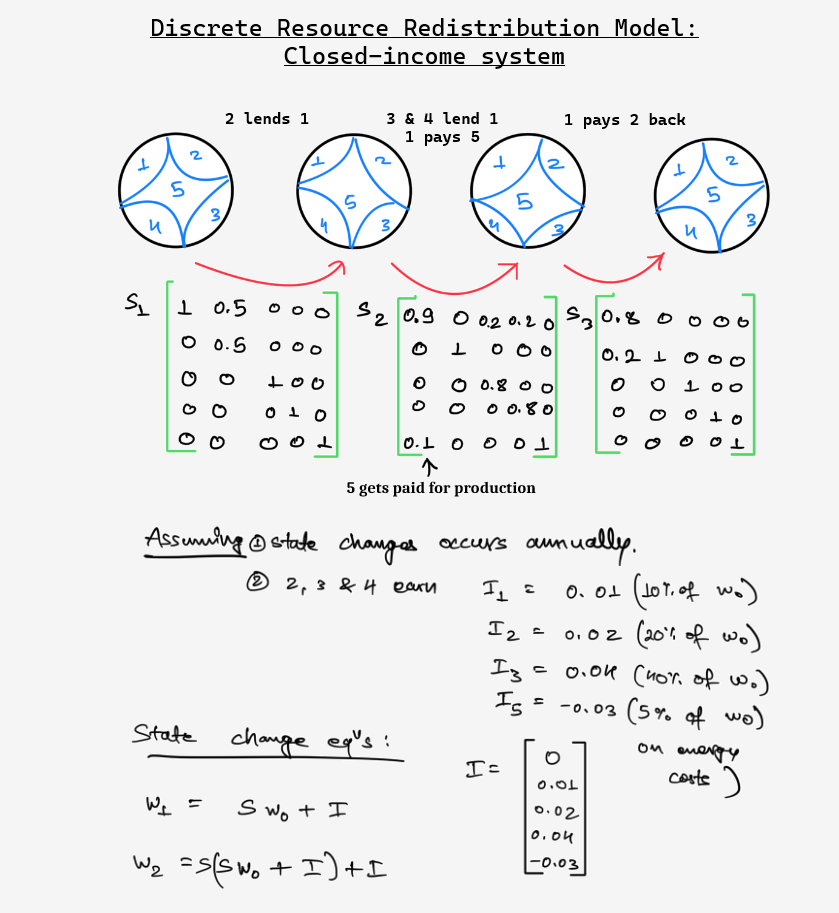 Discrete Resource Redistribution Model:
Closed-income system
2 lends 1
3 & 4 lend 1
1 pays 5
1 pays 2 back
1 2 5 4 3
1 2 5 4 3
1 2 5 4 3
1 2 5 4 3
S1
1 0.5 0 0 0
0 0.5 0 0 0
0 0 1 0 0
0 0 0 1 0
0 0 0 0 1
S2
0.9 0 0.2 0.2 0
0 1 0 0 0
0 0 0.8 0 0
0 0 0 0.8 0
0.1 0 0 0 1
S3
0.8 0 0 0 0
0.2 1 0 0 0
0 0 1 0 0
0 0 0 1 0
0 0 0 0 1
5 gets paid for production
Assuming ① state changes occurs annually.
② 2, 3 & 4 earn
I1 = 0.01 (10% of w0)
I2 = 0.02 (20% of w0)
I3 = 0.04 (40% of w0)
I5 = -0.03 (5% of w0)
on energy
costs)
State change eqns:
I =
0
0.01
0.02
0.04
-0.03
w1 = S w0 + I
w2 = S(S w0 + I) + I